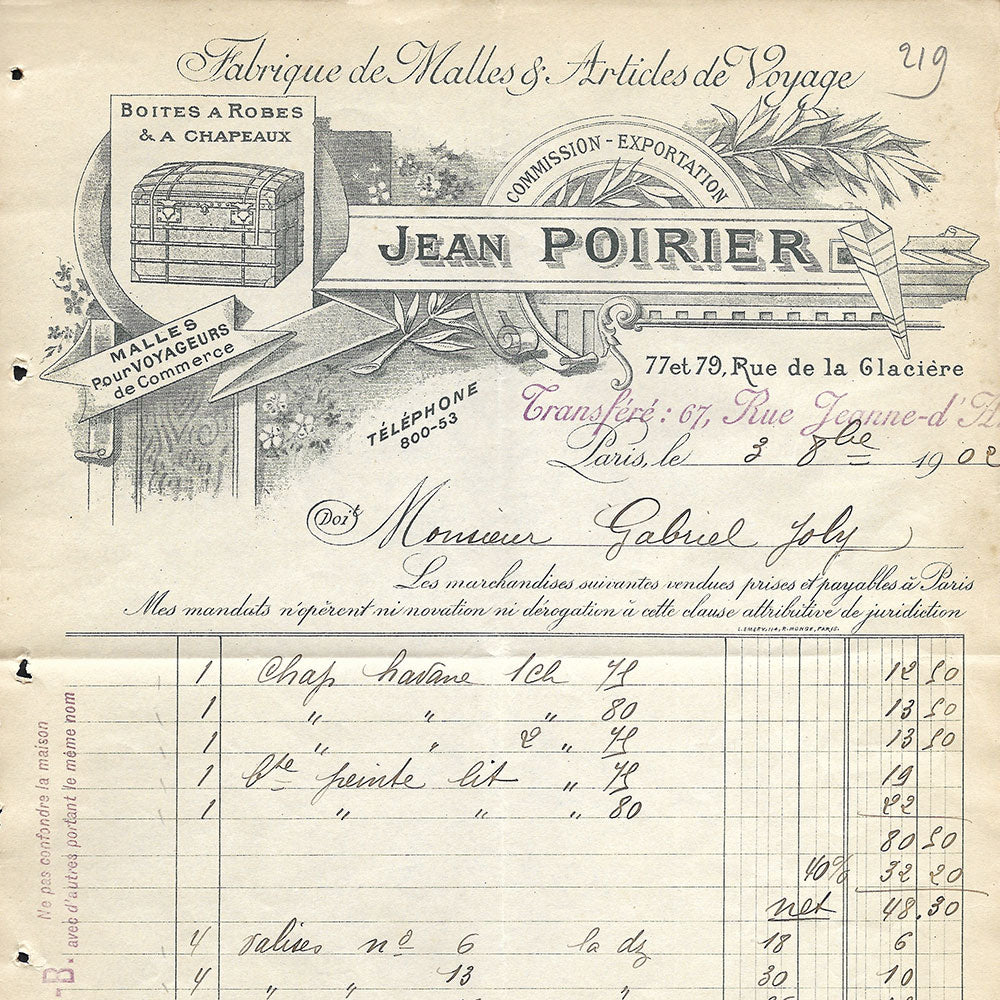 Fabrique de Malles & Articles de Voyage
219
BOITES A ROBES
& A CHAPEAUX
COMMISSION - EXPORTATION
JEAN POIRIER
MALLES
Pour VOYAGEURS
de Commerce
TÉLÉPHONE
800-53
77 et 79, Rue de la Glacière
Transféré : 67, Rue Jeanne-d'A
Paris, le 3 8bre 1902
Doit Monsieur Gabriel Joly
Les marchandises suivantes vendues prises et payables à Paris
Mes mandats n'opèrent ni novation ni dérogation à cette clause attributive de juridiction
L. EMERY, 114, R. MONGE, PARIS.
1 Chap havane 1 ch 75 12 50
1 " " " 80 13 50
1 " " 2 " 75 13 50
1 bte peinte lit " 75 19
1 " " " 80 22
80 50
40% 32 20
net 48.30
4 valises no 6 la dz 18 6
4 " " 13 " 30 10
Ne pas confondre la maison
avec d'autres portant le même nom